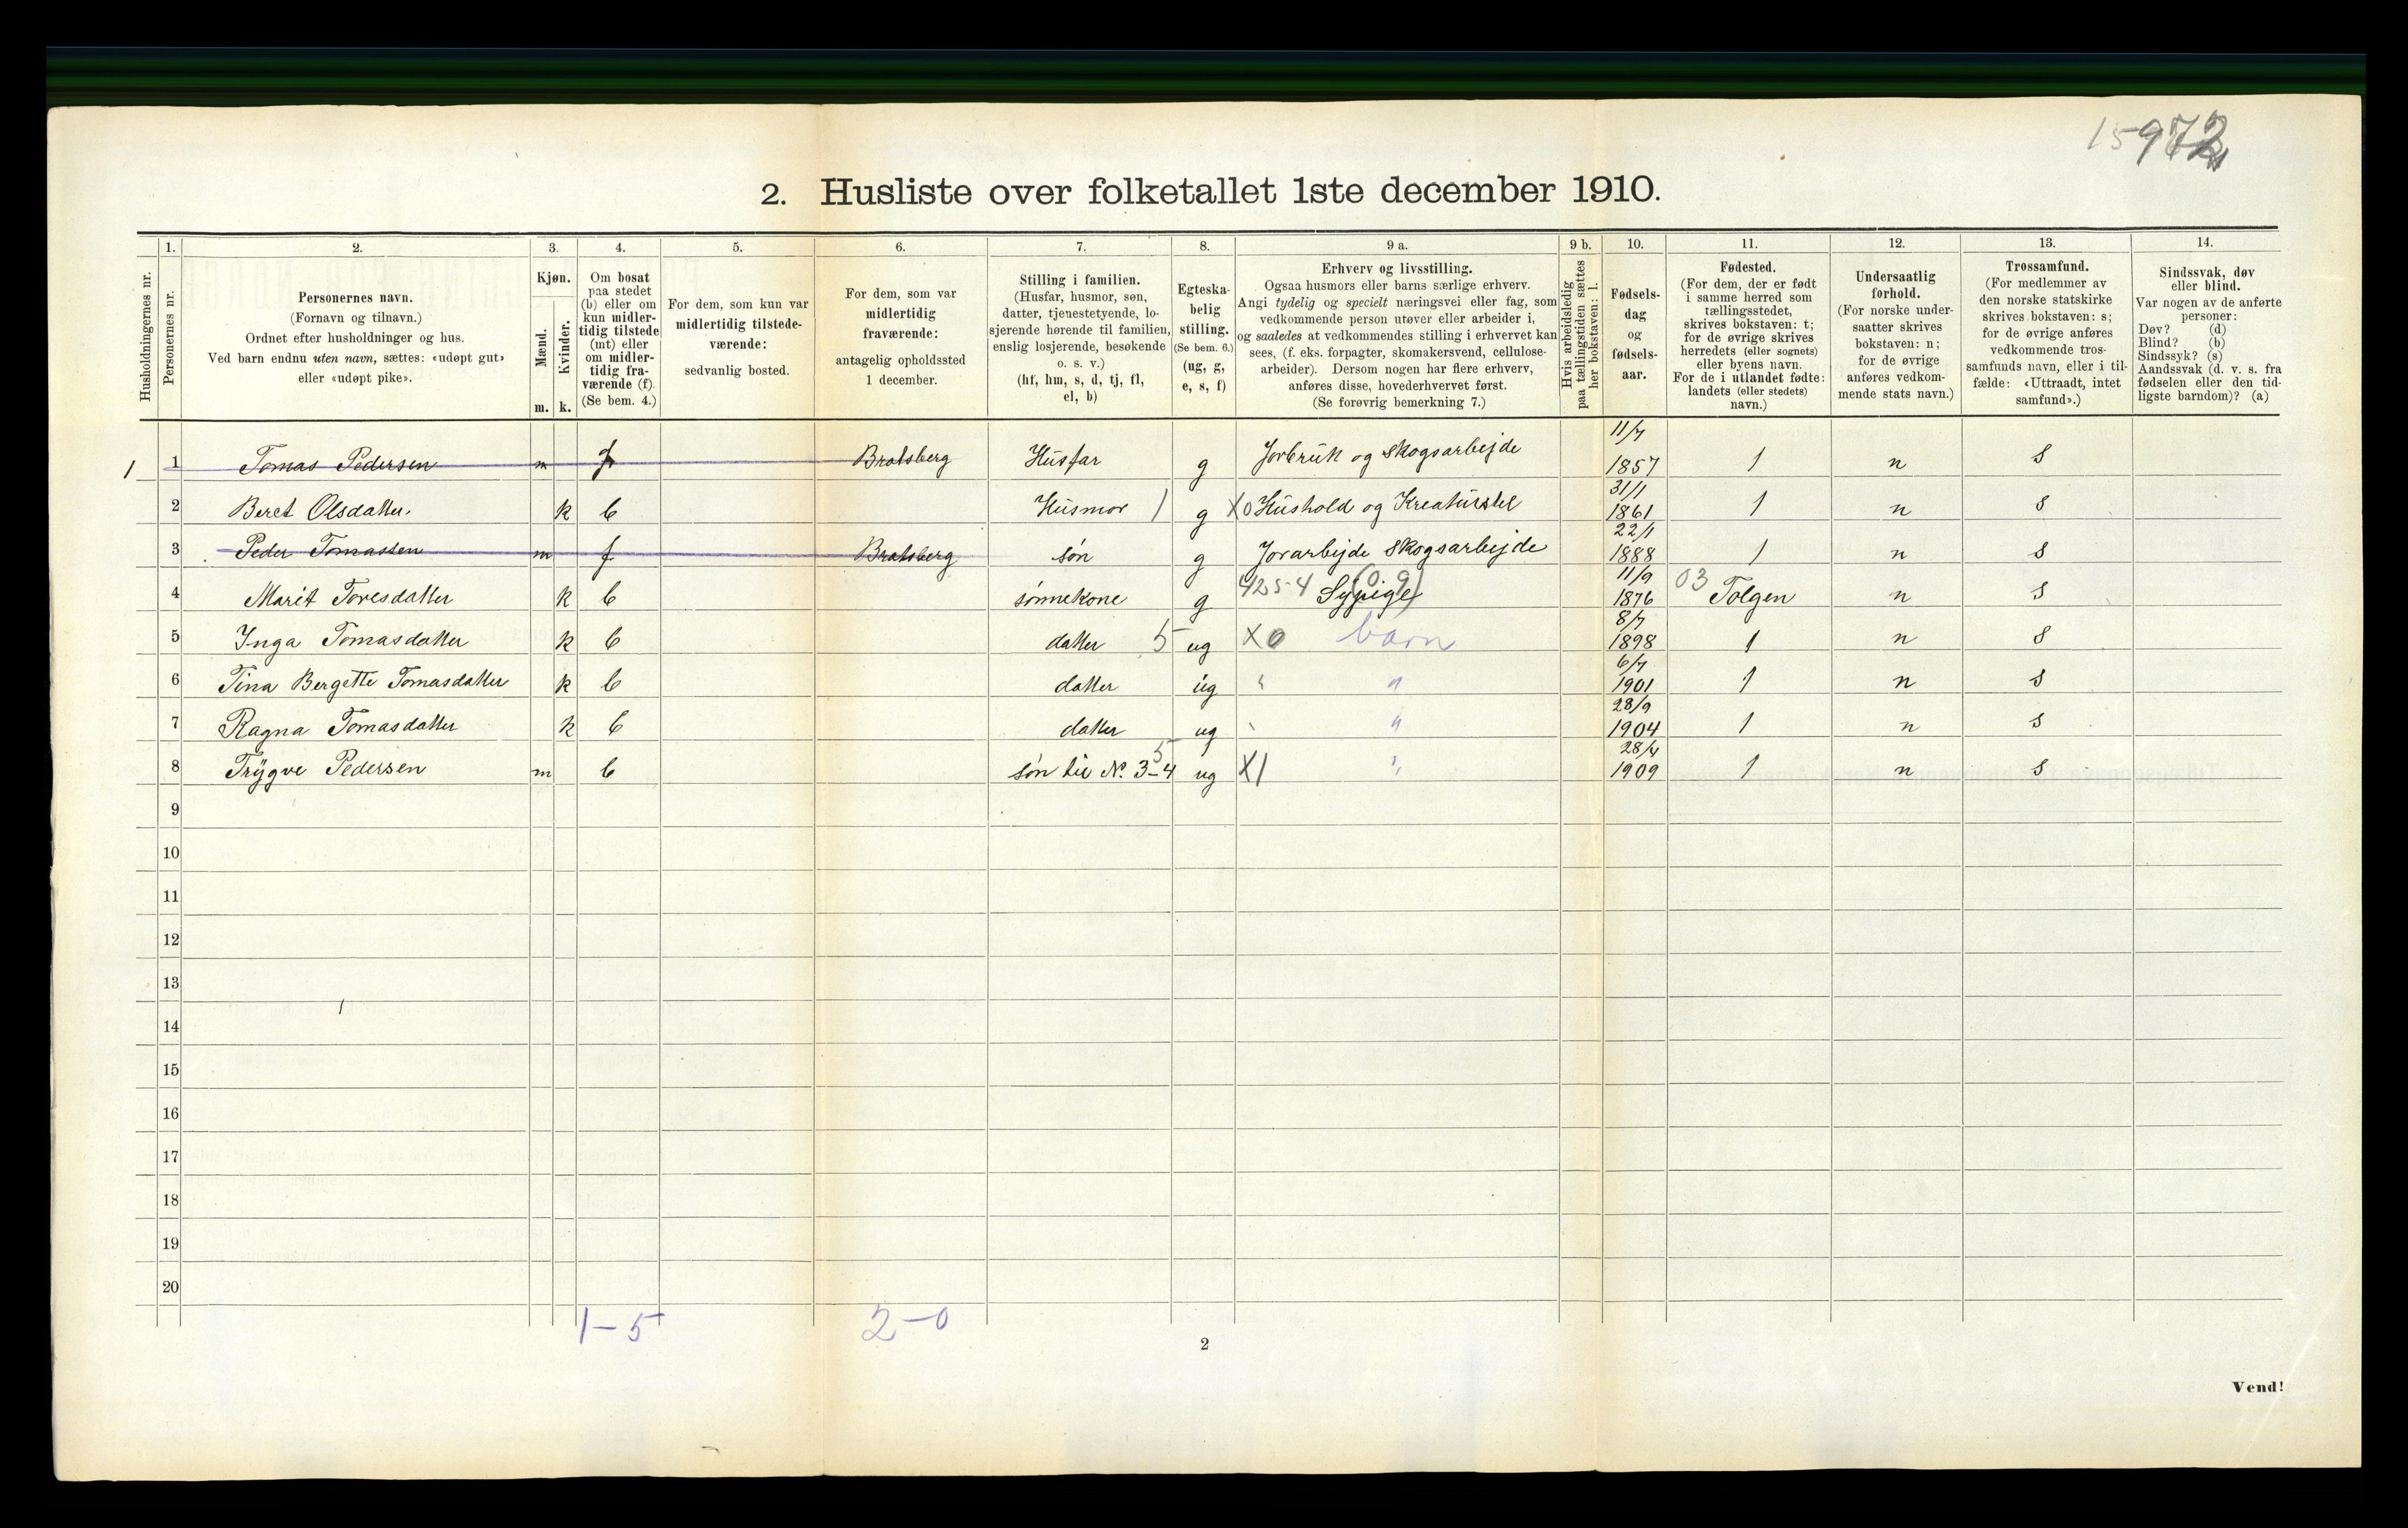 2. Husliste over folketallet 1ste december 1910.
Husholdningernes nr.
1.
Personernes nr.
2.
Personernes navn.
(Fornavn og tilnavn.)
Ordnet efter husholdninger og hus.
Ved barn endnu uten navn, sættes: «udøpt gut»
eller «udøpt pike».
3.
Kjøn.
Mænd.
Kvinder.
m. k.
4.
Om bosat
paa stedet
(b) eller om
kun midler-
tidig tilstede
(mt) eller
om midler-
tidig fra-
værende (f).
(Se bem. 4.)
5.
For dem, som kun var
midlertidig tilstede-
værende:
sedvanlig bosted.
6.
For dem, som var
midlertidig
fraværende:
antagelig opholdssted
1 december.
7.
Stilling i familien.
(Husfar, husmor, søn,
datter, tjenestetyende, lo-
sjerende hørende til familien,
enslig losjerende, besøkende
o. s. v.)
(hf, hm, s, d, tj, fl,
el, b)
8.
Egteska-
belig
stilling.
(Se bem. 6.)
(ug, g,
e, s, f)
9 a.
Erhverv og livsstilling.
Ogsaa husmors eller barns særlige erhverv.
Angi tydelig og specielt næringsvei eller fag, som
vedkommende person utøver eller arbeider i,
og saaledes at vedkommendes stilling i erhvervet kan
sees, (f. eks. forpagter, skomakersvend, cellulose-
arbeider). Dersom nogen har flere erhverv,
anføres disse, hovederhvervet først.
(Se forøvrig bemerkning 7.)
9 b.
Hvis arbeidsledig
paa tællingstiden sættes
her bokstaven: l.
10.
Fødsels-
dag
og
fødsels-
aar.
11.
Fødested.
(For dem, der er født
i samme herred som
tællingsstedet,
skrives bokstaven: t;
for de øvrige skrives
herredets (eller sognets)
eller byens navn.
For de i utlandet fødte:
landets (eller stedets)
navn.)
12.
Undersaatlig
forhold.
(For norske under-
saatter skrives
bokstaven: n;
for de øvrige
anføres vedkom-
mende stats navn.)
13.
Trossamfund.
(For medlemmer av
den norske statskirke
skrives bokstaven: s;
for de øvrige anføres
vedkommende tros-
samfunds navn, eller i til-
fælde: «Uttraadt, intet
samfund».)
14.
Sindssvak, døv
eller blind.
Var nogen av de anførte
personer:
Døv? (d)
Blind? (b)
Sindssyk? (s)
Aandssvak (d. v. s. fra
fødselen eller den tid-
ligste barndom)? (a)
1 1 Tomas Pedersen m f Bratsberg Husfar g Jorbruk og skogsarbejde 11/7 1857 1 n s
2 Beret Olsdatter. k b Husmor 1 g X0 Hushold og Kreaturstel 31/1 1861 1 n s
3 Peder Tomassen m f Bratsberg søn g Jorarbejde skogsarbejde 22/1 1888 1 n s
4 Marit Toresdatter k b sønnekone g Sypige 11/9 1876 03 Tolgen n s
5 Inga Tomasdatter k b datter 5 ug X0 barn 8/7 1898 1 n s
6 Tina Bergette Tomasdatter k b datter ug " 6/7 1901 1 n s
7 Ragna Tomasdatter k b datter ug " 28/9 1904 1 n s
8 Trygve Pedersen m b søn til No. 3-4 5 ug X1 " 28/4 1909 1 n s
9
10
11
12
13
14
15
16
17
18
19
20
1-5 2-0
2
Vend!